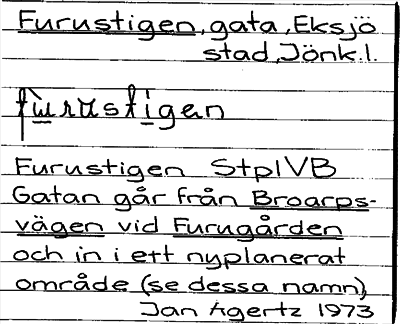 Furustigen, gata, Eksjö
stad, Jönk.l.
fùrustigan
Furustigen StplVB
Gatan går från Broarps-
vägen vid Furugården
och in i ett nyplanerat
område (se dessa namn)
Jan Agertz 1973